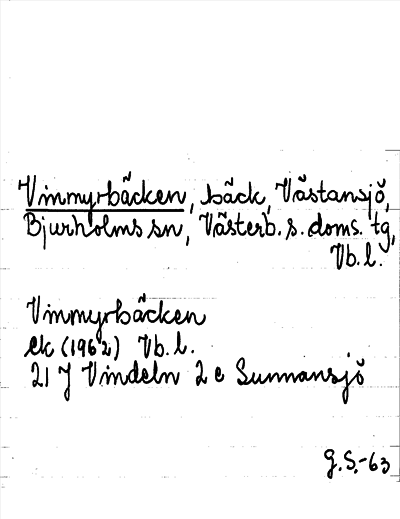 Vinmyrbäcken, bäck, Västansjö,
Bjurholms sn, Västerb. s. doms. tg,
Vb. l.
Vinmyrbäcken
ek (1962) Vb. l.
21 J Vindeln 2 e Sunnansjö
G.S.-63